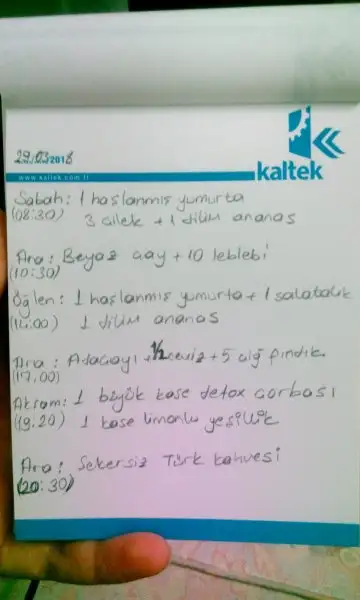 kaltek
29.03.2018
www.kaltek.com.tr
Sabah: 1 haşlanmış yumurta
(08:30) 3 çilek + 1 dilim ananas
Ara: Beyaz çay + 10 leblebi
(10:30)
Öğlen: 1 haşlanmış yumurta + 1 salatalık
(14:00) 1 dilim ananas
Ara: Adaçayı + 1/2 ceviz + 5 çiğ fındık
(17.00)
Akşam: 1 büyük kase detox çorbası
(19.20) 1 kase limonlu yeşillik
Ara: Şekersiz Türk kahvesi
(20:30)